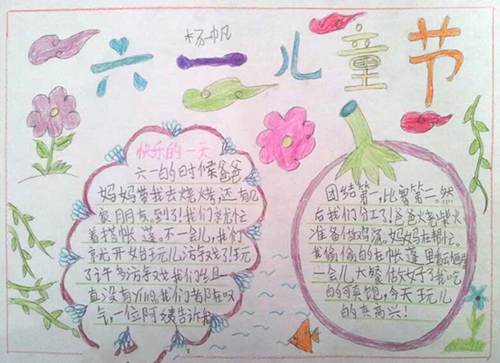 杨帆
六一儿童节
快乐的一天
六一的时候爸爸
妈妈带我去烧烤,还有几
家朋友,到了我们先忙
着搭帐篷。不一会儿,我们
就开始玩儿游戏了玩
了许多游戏我们出
直没有 我们都在叹
气,一位阿姨告诉我
团结第一,比赛第二,然
后我们分工了爸爸烧柴火
准备做鸡汤,妈妈在帮忙。
我偷偷的在帐篷里
一会儿大餐做好了我吃
的可真饱,今天玩儿
的真高兴!